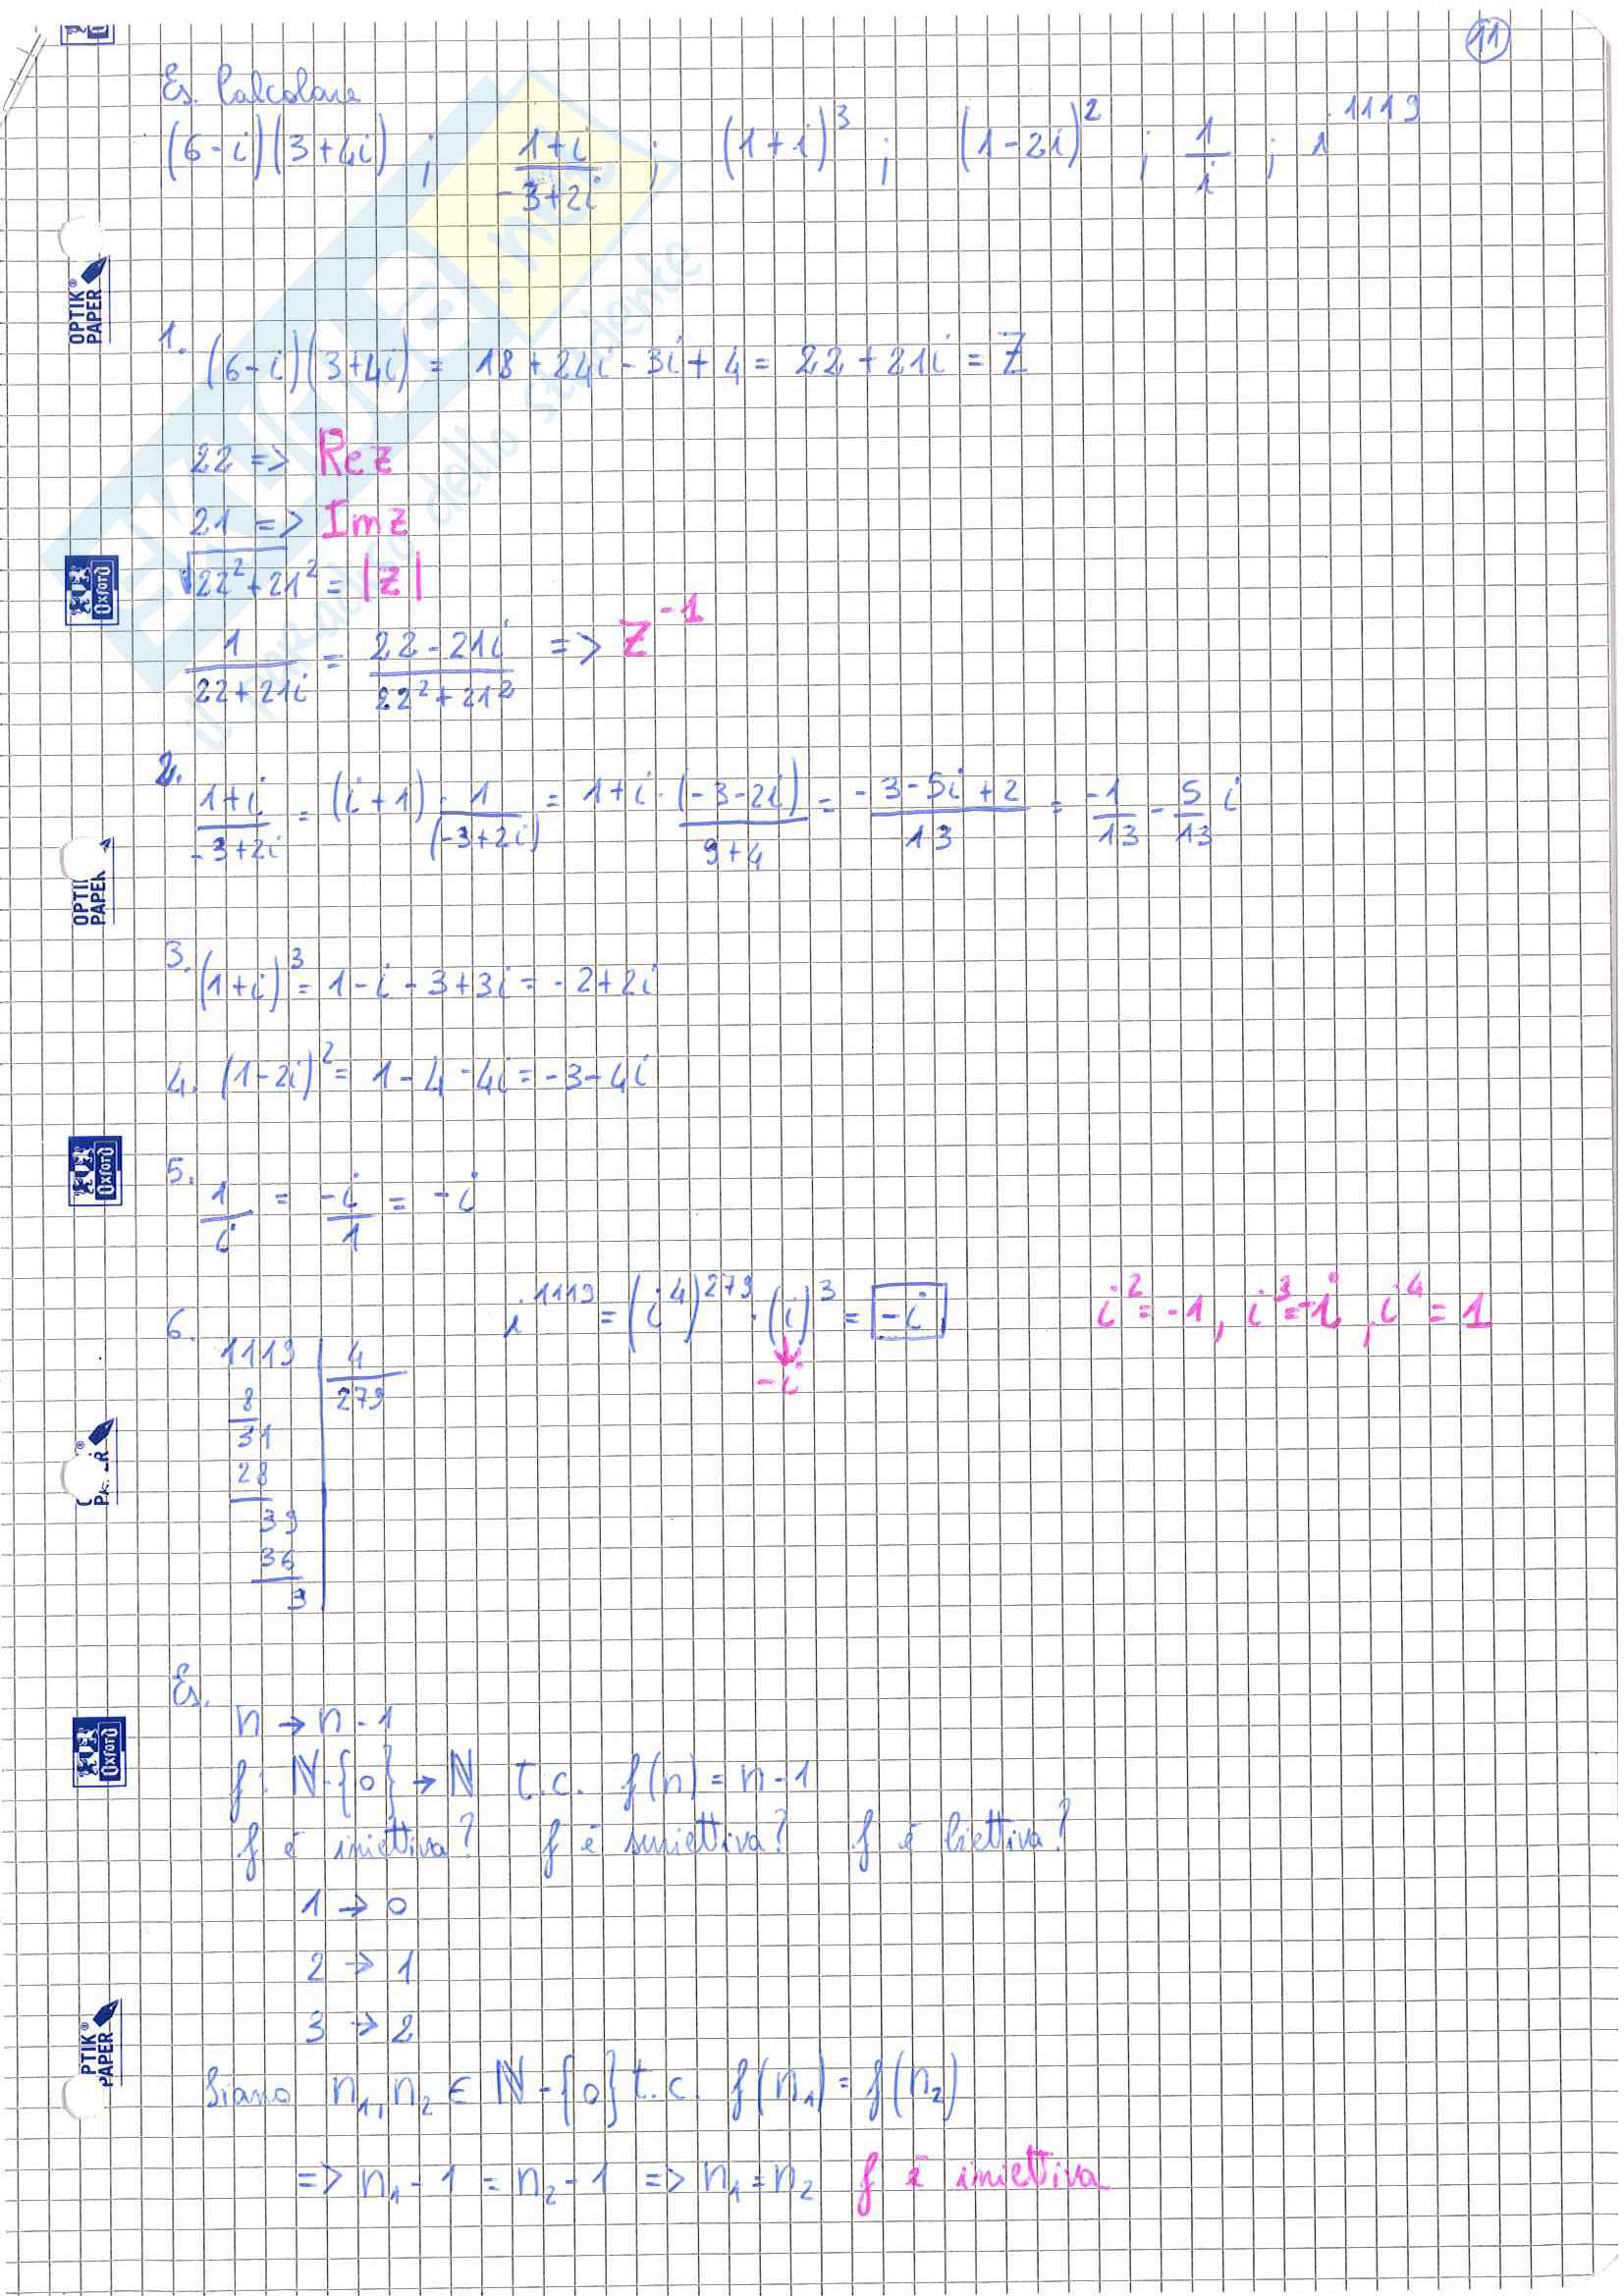 11
Es. Calcolare
(6-i)(3+4i) ; 1+i/-3+2i ; (1+i)³ ; (1-2i)² ; 1/i ; i¹¹¹⁹
OPTIK® PAPER
1. (6-i)(3+4i) = 18+24i-3i+4 = 22+21i = Z
22 => Re z
21 => Im z
√22²+21² = |z|
Oxford
1/22+21i = 22-21i/22²+21² => Z⁻¹
2. 1+i/-3+2i = (i+1)·1/(-3+2i) = 1+i·(-3-2i)/9+4 = -3-5i+2/13 = -1/13 - 5/13 i
3. (1+i)³ = 1-i-3+3i = -2+2i
4. (1-2i)² = 1-4-4i = -3-4i
Oxford
5. 1/i = -i/1 = -i
6. i¹¹¹⁹ = (i⁴)²⁷⁹·(i)³ = -i i²=-1, i³=-i, i⁴=1
-i
1119 | 4
8 279
31
28
39
36
3
Es.
n → n-1
Oxford
f: ℕ-{0} → ℕ t.c. f(n) = n-1
f è iniettiva? f è suriettiva? f è biettiva?
1 → 0
2 → 1
3 → 2
PTIK® PAPER
Siano n₁, n₂ ∈ ℕ-{0} t.c. f(n₁) = f(n₂)
=> n₁-1 = n₂-1 => n₁=n₂ f è iniettiva